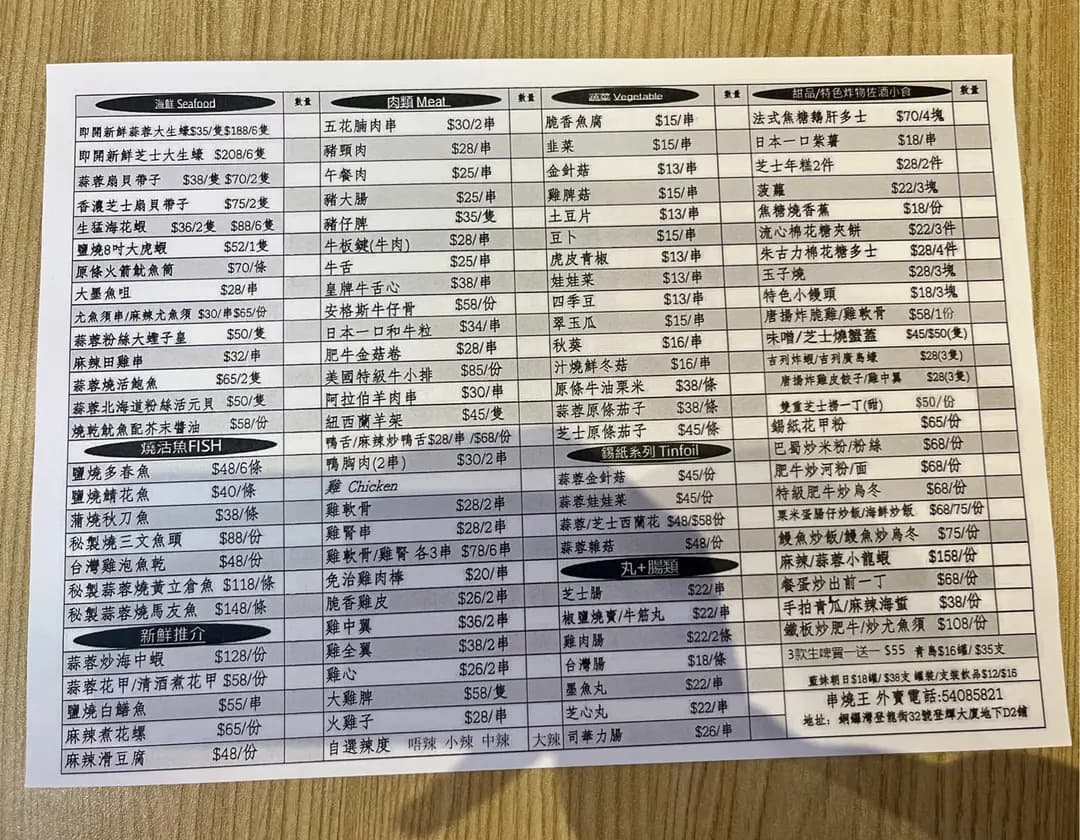 海鮮 Seafood 數量
即開新鮮蒜蓉大生蠔$35/隻$188/6隻
即開新鮮芝士大生蠔 $208/6隻
蒜蓉扇貝帶子 $38/隻 $70/2隻
香濃芝士扇貝帶子 $75/2隻
生猛海花蝦 $36/2隻 $88/6隻
鹽燒8吋大虎蝦 $52/1隻
原條火箭魷魚筒 $70/條
大墨魚咀 $28/串
尤魚須串/麻辣尤魚須 $30/串$65/份
蒜蓉粉絲大蟶子皇 $50/隻
麻辣田雞串 $32/串
蒜蓉燒活鮑魚 $65/2隻
蒜蓉北海道粉絲活元貝 $50/隻
燒乾魷魚配芥末醬油 $58/份
燒活魚FISH
鹽燒多春魚 $48/6條
鹽燒鯖花魚 $40/條
蒲燒秋刀魚 $38/條
秘製燒三文魚頭 $88/份
台灣雞泡魚乾 $48/份
秘製蒜蓉燒黃立倉魚 $118/條
秘製蒜蓉燒馬友魚 $148/條
新鮮推介
蒜蓉炒海中蝦 $128/份
蒜蓉花甲/清酒煮花甲 $58/份
鹽燒白鱔魚 $55/串
麻辣煮花螺 $65/份
麻辣滑豆腐 $48/份
肉類 Meat 數量
五花腩肉串 $30/2串
豬頸肉 $28/串
午餐肉 $25/串
豬大腸 $25/串
豬仔脾 $35/隻
牛板鍵(牛肉) $28/串
牛舌 $25/串
皇牌牛舌心 $38/串
安格斯牛仔骨 $58/份
日本一口和牛粒 $34/串
肥牛金菇卷 $28/串
美國特級牛小排 $85/份
阿拉伯羊肉串 $30/串
紐西蘭羊架 $45/隻
鴨舌/麻辣炒鴨舌$28/串 /$68/份
鴨胸肉(2串) $30/2串
雞 Chicken
雞軟骨 $28/2串
雞腎串 $28/2串
雞軟骨/雞腎 各3串 $78/6串
免治雞肉棒 $20/串
脆香雞皮 $26/2串
雞中翼 $36/2串
雞全翼 $38/2串
雞心 $26/2串
大雞脾 $58/隻
火雞子 $28/串
自選辣度 唔辣 小辣 中辣 大辣
蔬菜 Vegetable 數量
脆香魚腐 $15/串
韭菜 $15/串
金針菇 $13/串
雞脾菇 $15/串
土豆片 $13/串
豆卜 $15/串
虎皮青椒 $13/串
娃娃菜 $13/串
四季豆 $13/串
翠玉瓜 $15/串
秋葵 $16/串
汁燒鮮冬菇 $16/串
原條牛油栗米 $38/條
蒜蓉原條茄子 $38/條
芝士原條茄子 $45/條
錫紙系列 Tinfoil
蒜蓉金針菇 $45/份
蒜蓉娃娃菜 $45/份
蒜蓉/芝士西蘭花 $48/$58份
蒜蓉雜菇 $48/份
丸+腸類
芝士腸 $22/串
椒鹽燒賣/牛筋丸 $22/串
雞肉腸 $22/2條
台灣腸 $18/條
墨魚丸 $22/串
芝心丸 $22/串
司華力腸 $26/串
甜品/特色炸物佐酒小食 數量
法式焦糖鵝肝多士 $70/4塊
日本一口紫薯 $18/串
芝士年糕2件 $28/2件
菠蘿 $22/3塊
焦糖燒香蕉 $18/份
流心棉花糖夾餅 $22/3件
朱古力棉花糖多士 $28/4件
玉子燒 $28/3塊
特色小饅頭 $18/3塊
唐揚炸脆雞/雞軟骨 $58/1份
味噌/芝士燒蟹蓋 $45/$50(隻)
吉列炸蝦/吉列廣島蠔 $28(3隻)
唐揚炸雞皮餃子/雞中翼 $28(3隻)
雙重芝士撈一丁(甜) $50/份
錫紙花甲粉 $65/份
巴蜀炒米粉/粉絲 $68/份
肥牛炒河粉/面 $68/份
特級肥牛炒烏冬 $68/份
栗米蛋腸仔炒飯/海鮮炒飯 $68/75/份
鰻魚炒飯/鰻魚炒烏冬 $75/份
麻辣/蒜蓉小龍蝦 $158/份
餐蛋炒出前一丁 $68/份
手拍青瓜/麻辣海蜇 $38/份
鐵板炒肥牛/炒尤魚須 $108/份
3款生啤買一送一 $55 青島$16罐/ $35支
藍妹朝日$18罐/ $38支 罐裝/支裝飲品$12/$16
串燒王 外賣電話:54085821
地址: 銅鑼灣登龍街32號登輝大廈地下D2鋪